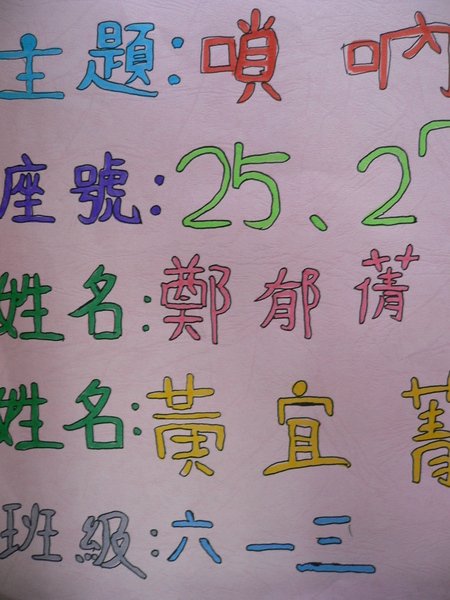 主題:嗩吶
座號:25、27
姓名:鄭郁蒨
姓名:黃宜菁
班級:六一三